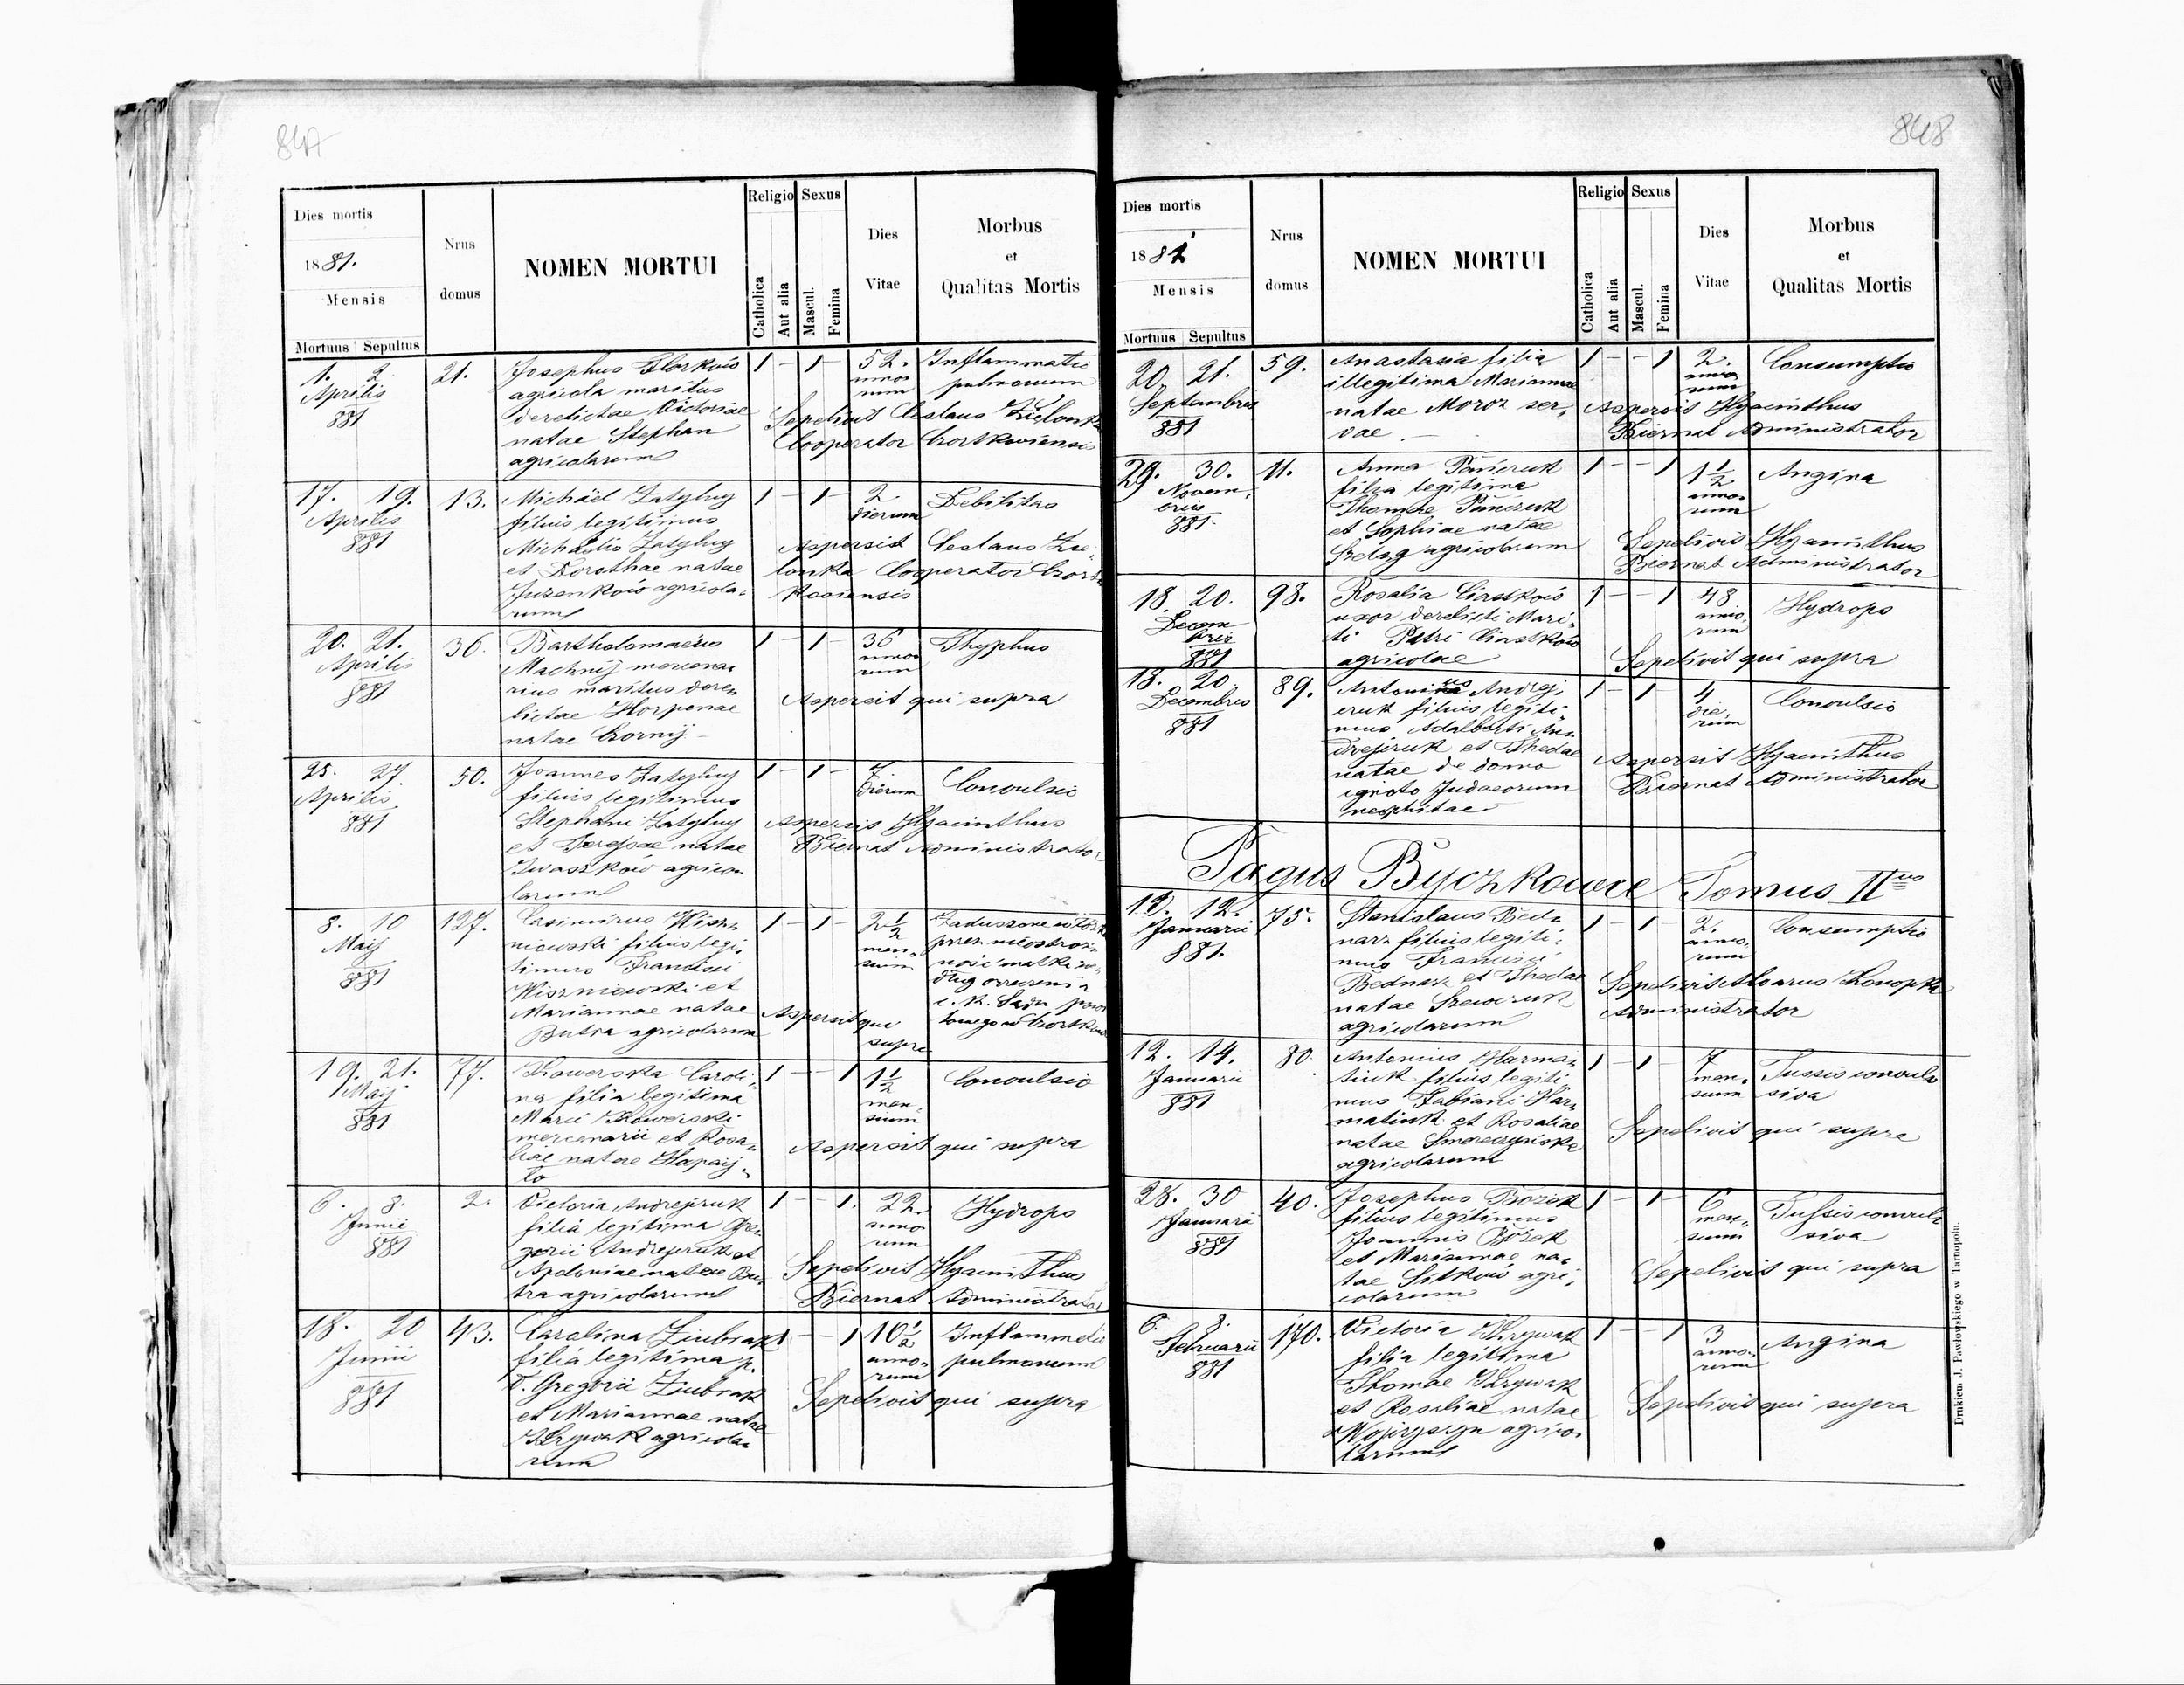 847
Dies mortis
1881.
Mensis
Mortuus Sepultus
Nrus
domus
NOMEN MORTUI
Religio
Catholica
Aut alia
Sexus
Mascul.
Femina
Dies
Vitae
Morbus
et
Qualitas Mortis
1. 2.
Aprilis
881
21.
Josephus
agricola maritus
derelictae Victoriae
natae Stephan
agricolarum
1 – 1 –
52.
anno
rum
Inflammatio
pulmonum
Sepelivit Ceslaus Zielonka
Cooperator Czortkoviensis
17. 19.
Aprilis
881
13.
Michäel Zatylny
filius legitimus
Michäelis Zatylny
et Dorothae natae
Juzenków agricola-
rum
1 – 1 –
2.
dierum
Debilitas
Aspersit Ceslaus Zie-
lonka Cooperator Czort
koviensis
20. 21.
Aprilis
881
36.
Bartholomaeus
Machnij mercena-
rius maritus dere-
lictae Horpenae
natae Czornij
1 – 1 –
36
anno
rum
Thyphus
Aspersit qui supra
25. 27.
Aprilis
881
50.
Joannes Zatylny
filius legitimus
Stephani Zatylny
et natae
Iwaszków agrico-
larum
1 – 1 –
7
dierum
Convulsio
Aspersit Hyacinthus
Biernat Administrator
8. 10
Maij
881
127.
Casimirus Wisz-
niowski filius legi-
timus Francisci
Wiszniowski et
Mariannae natae
Butra agricolarum
1 – 1 –
2 1/2
men-
sium
Zaduszone w łóżku
przez nieostroż-
ność matki we-
dług orzeczenia
c. k. Sądu powia
towego w Czortkowie
Aspersit qui
supra
19. 21.
Maij
881
77.
Kowerska Caroli-
na filia legitima
Marci Kowerski
mercenarii et Rosa-
liae natae Hapaij-
to
1 – – 1
1 1/2
men-
sium
Convulsio
Aspersit qui supra
6. 8.
Junii
881
2.
Victoria Andrejczuk
filia legitima Gre-
gorii Andrejczuk et
Apoloniae natae Bu-
tra agricolarum
1 – – 1.
22.
anno
rum
Hydrops
Sepelivit Hyacinthus
Biernat Administrator
18. 20
Junii
881
43.
Carolina Ziubrak
filia legitima p.
d. Gregorii Ziubrak
et Mariannae natae
Krzywak agricola-
rum
1 – – 1
10 1/2
anno-
rum
Inflammatio
pulmonum
Sepelivit qui supra
848
Dies mortis
1881
Mensis
Mortuus Sepultus
Nrus
domus
NOMEN MORTUI
Religio
Catholica
Aut alia
Sexus
Mascul.
Femina
Dies
Vitae
Morbus
et
Qualitas Mortis
20. 21.
Septembris
881
59.
Anastasia filia
illegitima Mariannae
natae Moroz ser-
vae. –
1 – – 1
2.
anno
rum
Consumptio
Aspersit Hyacinthus
Biernat Administrator
29. 30.
Novem-
bris
881.
11.
Anna Pańczuk
filia legitima
Thomae Pańczuk
et Sophiae natae
Szeląg agricolarum
1 – – 1
1 1/2
anno-
rum
Angina
Sepelivit Hyacinthus
Biernat Administrator
18. 20.
Decem
bris
881
98.
Rosalia Ciastków
uxor derelicti Mari-
ti Petri Ciastków
agricolae
1 – – 1
48
anno-
rum
Hydrops
Sepelivit qui supra
18. 20.
Decembris
881
89.
Antonius Andrej-
czuk filius legiti-
mus Adalberti An-
drejczuk et Theclae
natae de domo
ignoto Judaeorum
neophitae
1 – 1 –
4
die-
rum
Convulsio
Aspersit Hyacinthus
Biernat Administrator
Pagus Byczkowce Tomus II us
12.
Januarii
881.
75.
Stanislaus Bed-
narz filius legiti-
mus Francisci
Bednarz et Theclae
natae Szewczuk
agricolarum
1 – 1 –
2.
anno-
rum
Consumptio
Sepelivit Alvarus Konopka
Administrator
12. 14.
Januarii
881
80.
Antonius Harma-
tiuk filius legiti-
mus Fabiani Har-
matiuk et Rosaliae
natae Smereczyńska
agricolarum
1 – 1 –
7
men-
sium
Tussis convul
siva
Sepelivit qui supra
28. 30
Januarii
881
40.
Josephus Bożek
filius legitimus
Joannis Bożek
et Mariannae na-
tae Sitków agri-
colarum
1 – 1 –
6
men-
sium
Tussis convul
siva
Sepelivit qui supra
6. 8.
Februarii
881
170.
Victoria Krzywak
filia legitima
Thomae Krzywak
et Rosaliae natae
agrico-
larum
1 – – 1
3
anno-
rum
Angina
Sepelivit qui supra
Drukiem J. Pawłowskiego w Tarnopolu.